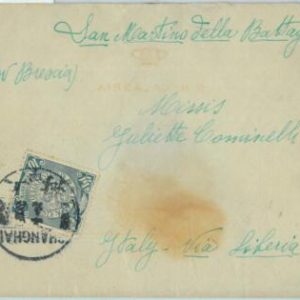 San Martino della Battag
(Prov Brescia)
Missis
Juliette Cominelli
Italy - Via Siberia
SHANGHAI